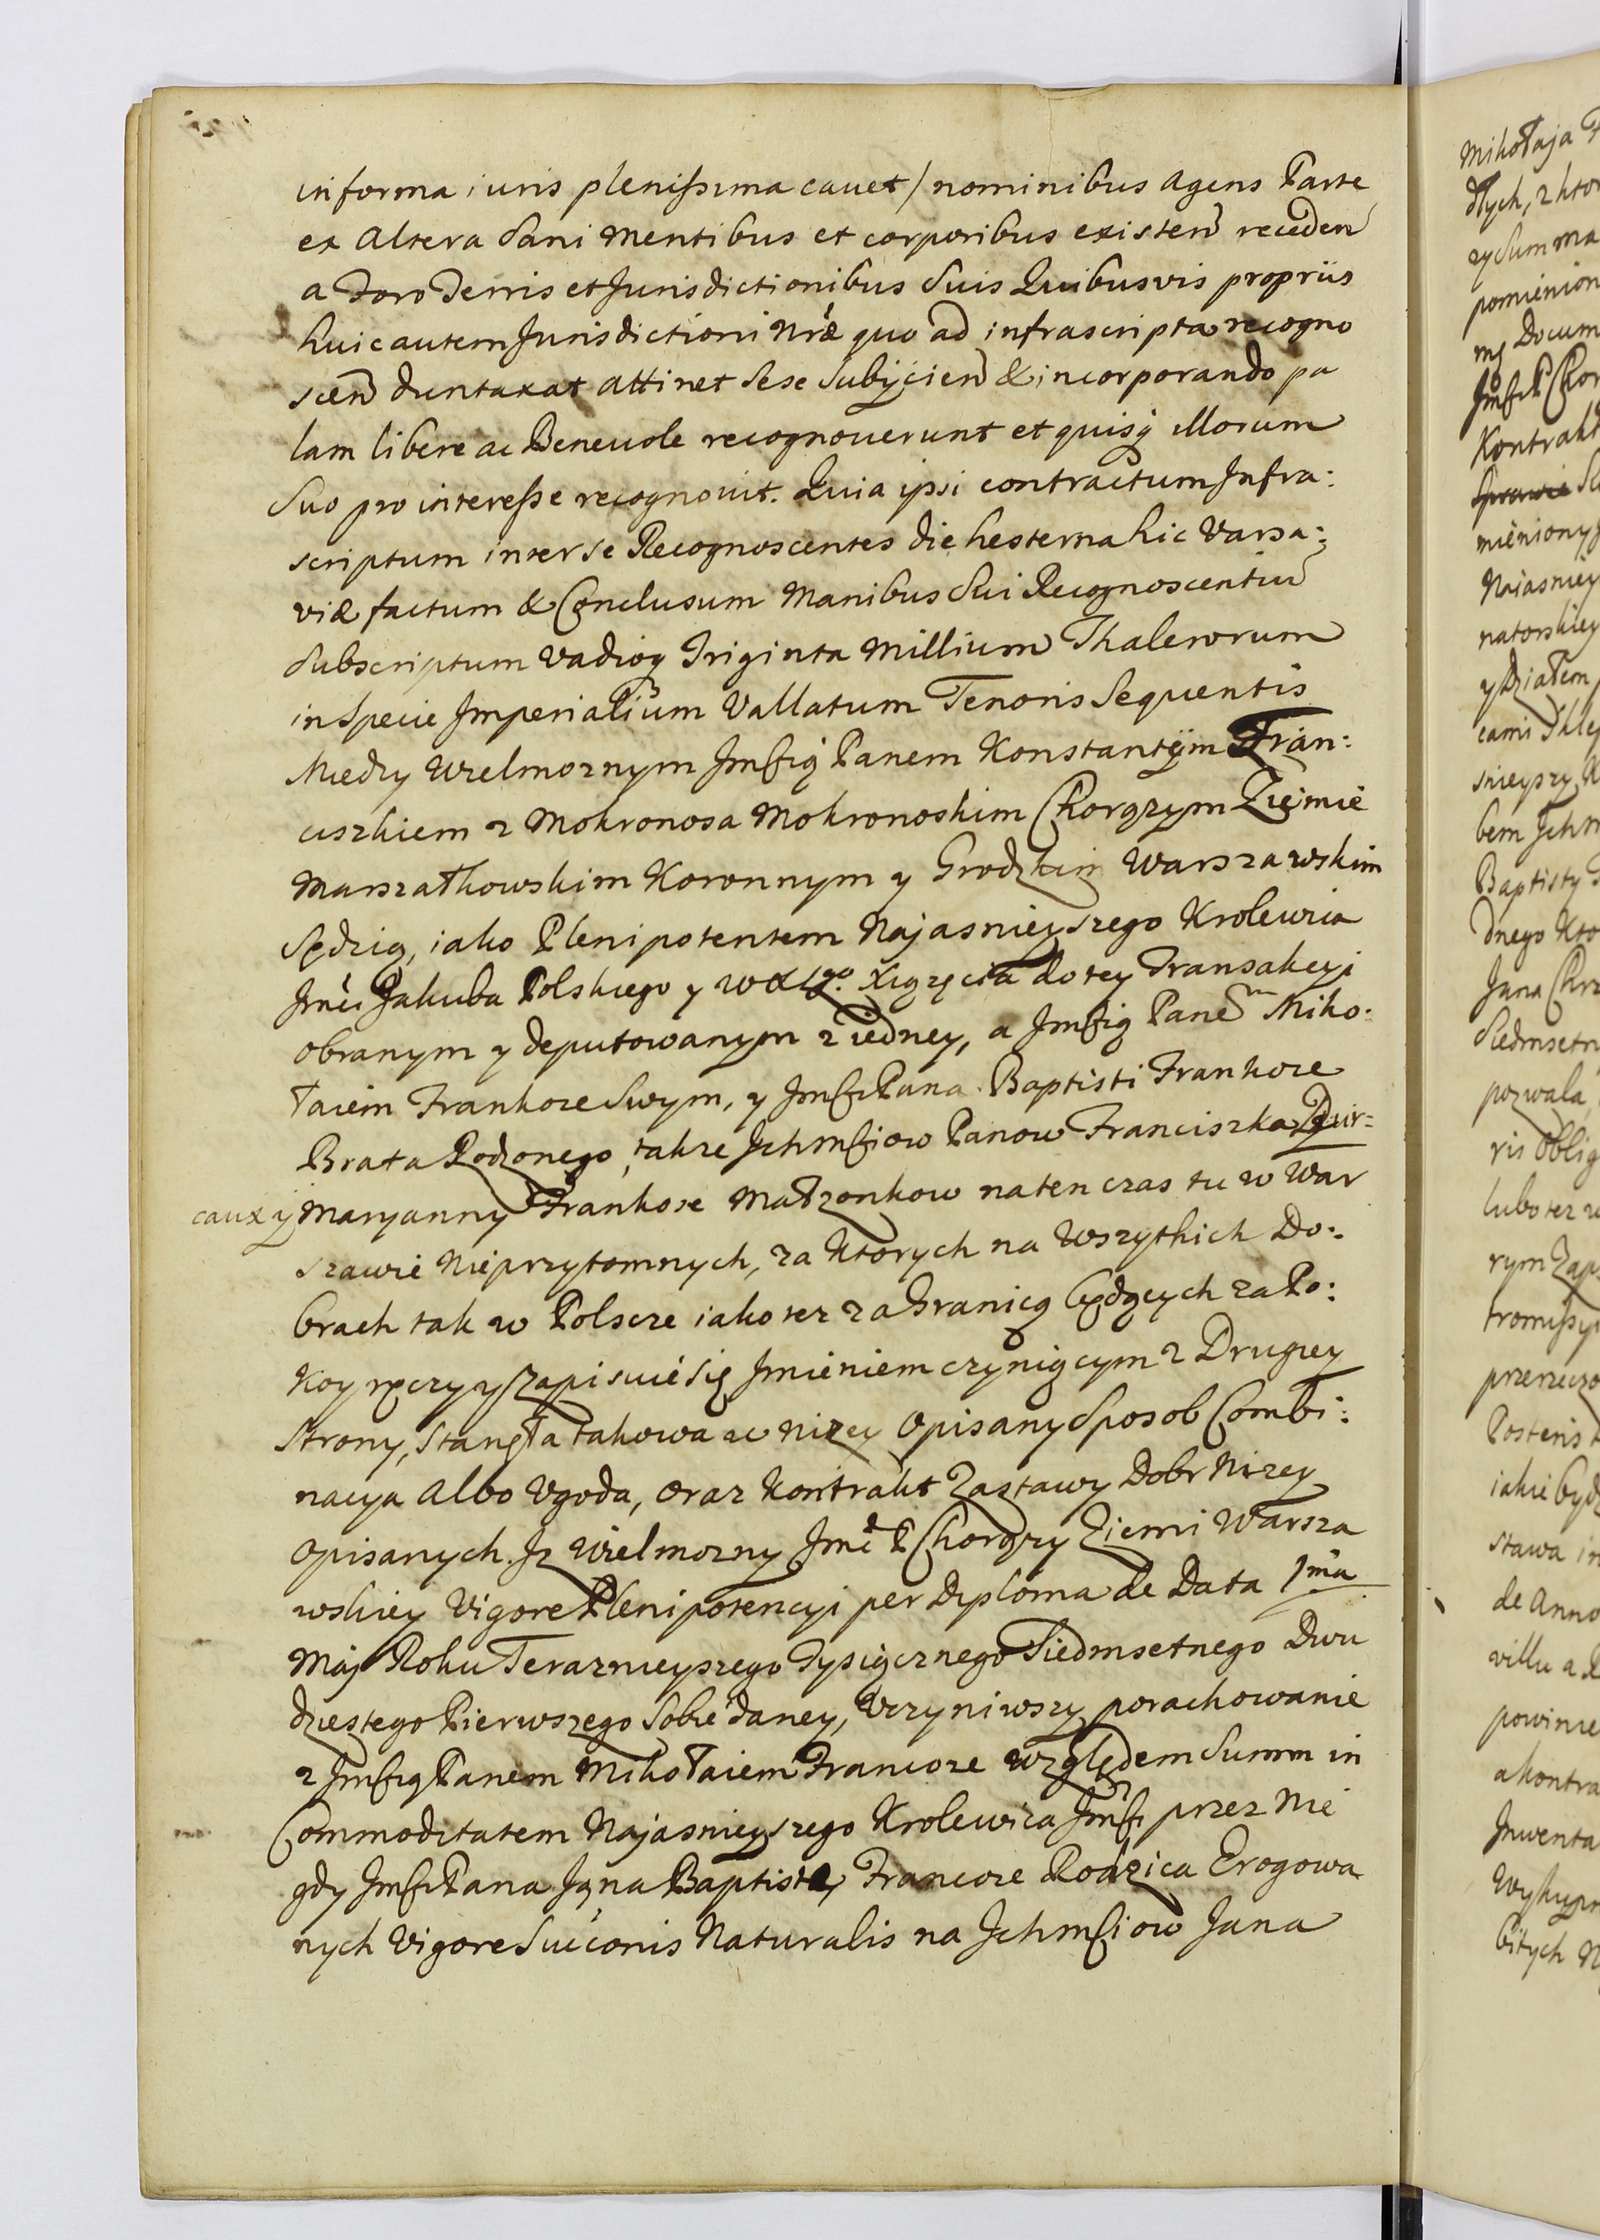 in forma iuris plenissima cavet / nominibus agens Parte
ex Altera Sani Mentibus et corporibus existen receden
a Foro Terris et Jurisdictionibus Suis Quibusvis propriis
huic autem Jurisdictioni Nrae quo ad infrascripta recogno
scen duntaxat attinet Sese Subijcien & incorporando pa
lam libere ac Benevole recognoverunt et quisq illorum
Suo pro interesse recognovit. Quia ipsi contractum Infra:
scriptum inter se Recognoscentes die hesterna hic Varsa:
viae factum & Conclusum Manibus Sui Recognoscentiu
Subscriptum Vadioq Triginta Millium Thalerorum
in Specie Imperialium Vallatum Tenoris Sequentis
Miedzy Wielmoznym Jmścią Panem Konstantym Fran:
ciszkiem z Mokronosa Mokronoskim Chorązym Ziemie
Marszałkowskim Koronnym y Grodzkim Warszawskim
Sędzią, iako Plenipotentem Najasnieyszego Krolewica
Jmci Jakuba Polskiego y W X Lgo. Xiązęcia do tey Transakcyi
obranym y deputowanym z iedney, a Jmścią Panem Miko:
łaiem Frankoze Swym, y Jmści Pana Baptisti Frankoze
Brata Rodzonego, takze Ichmściow Panow Franciszka Dur=
caux y Maryanny Frankoze Małzonkow na ten czas tu w War
szawie Nieprzytomnych, za Ktorych na Wszytkich Do:
brach tak w Polscze iako tez za Granicą będących za Po:
koy ręczy y Zapisuie Się Jmieniem czyniącym z Drugiey
Strony, Stanęła takowa w nizey Opisany Sposob Combi:
nacya Albo Ugoda, oraz Kontrakt Zastawy Dobr Nizey
Opisanych. Jz Wielmozny Jmć P Chorązy Ziemi Warsza
wskiey Vigore Plenipotencyi per Diploma de Data 1ma
Maj Roku Teraznieyszego Tysiącznego Siedmsetnego Dwu
dziestego Pierwszego Sobie daney, Uczyniwszy porachowanie
z Jmścią Panem Mikołaiem Francoze względem Summ in
Commoditatem Najasnieyszego Krolewica Jmści przez Nie
gdy Jmści Pana Jana Baptisty Francoze Rodzica Erogowa
nych Vigore Succonis Naturalis na Ichmściow Jana
Mikołaja
dłych, z ktor
zy Summa
pomienion
mą Docum
Jmści P Chor
Kontrakt
mieniony
Najasniey
natorskiey
y Działem
cami
snieyszy
bem Ichm
Baptisty
dnego Kto
Jana Chrz
Siedmsetn
pozwala
ris Oblig
lubo tez w
rym Zapi
tromissyi
przerzeczo
Posteris
iakie będz
stawa in
de Anno
villu a
powinie
a kontra
Inwenta
Wykupn
bitych